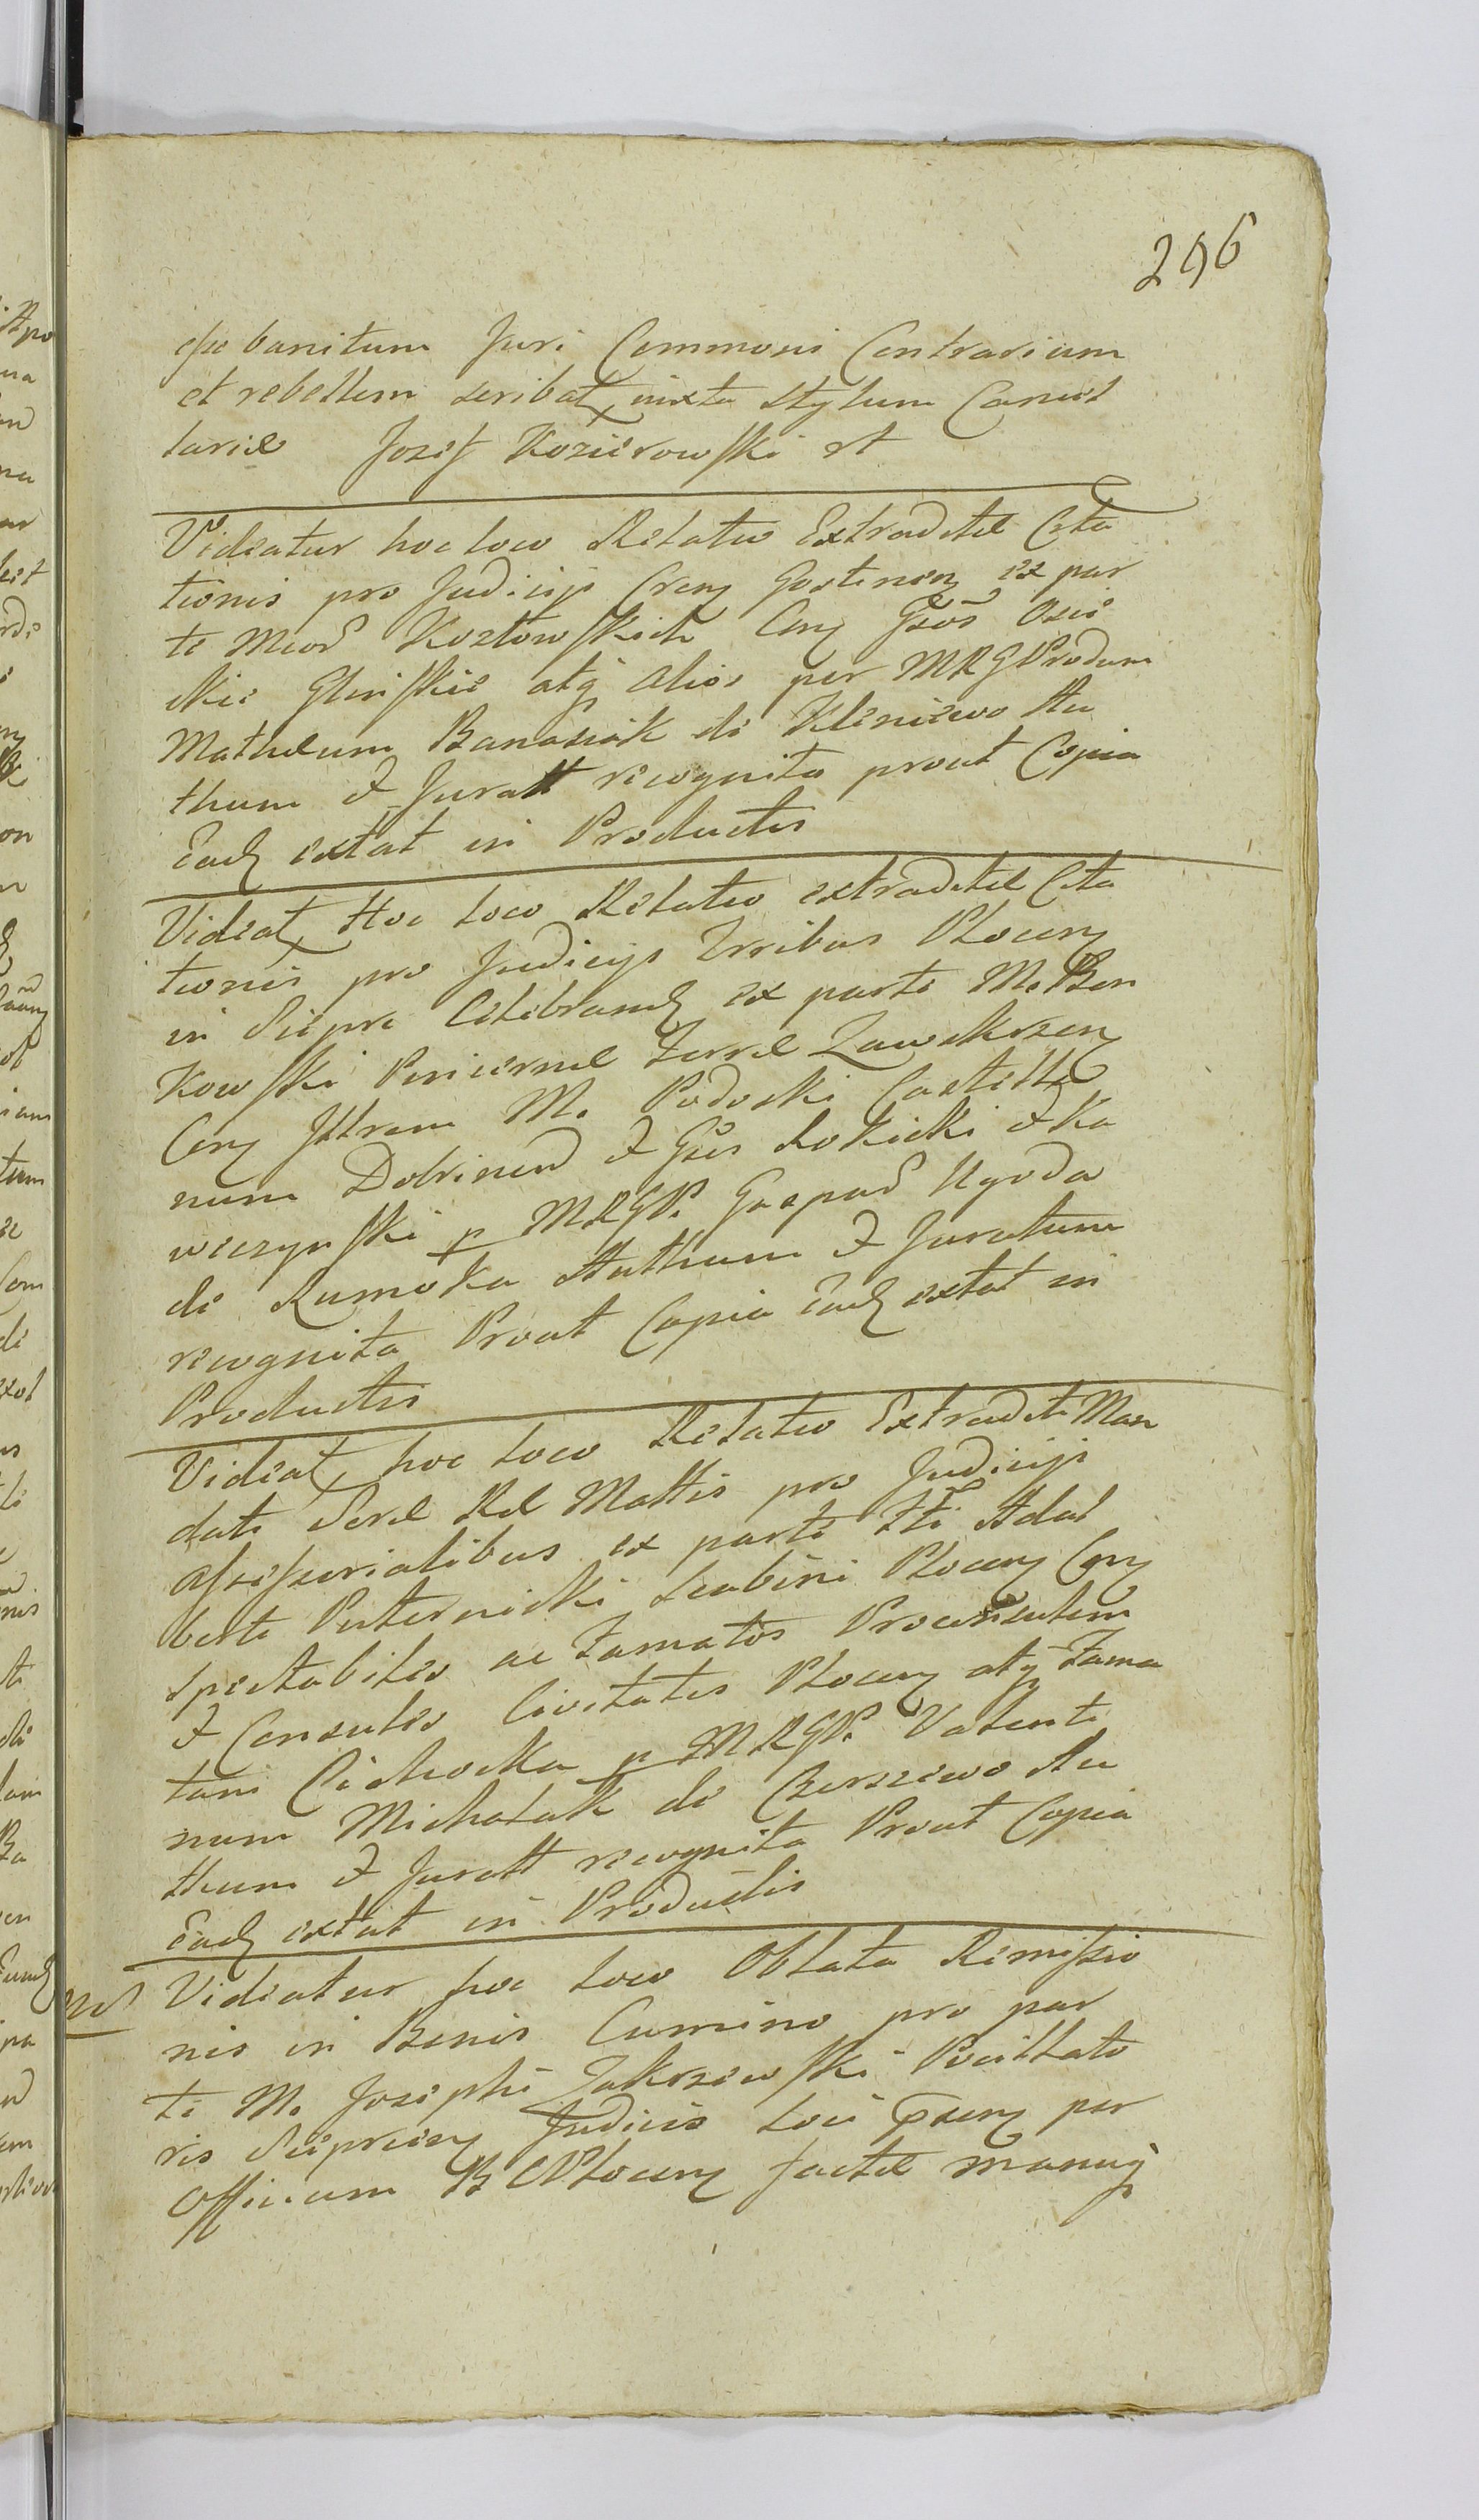 296
esse banitum Juri Communi Contrarium
et rebellem scribat, iuxta Stylum Cancel
lariæ Jozef Kozierowski st
Videatur hoc loco Relatio Extraditæ Cita
tionis pro Judicijs Gostinen ex par
te Kozłowskich Con Gsos Osie
ckie Glinskie atq Alios per MRGProdum
Mathæum Banasiak de Kleniewo Au
thum & Juratt recognita prout Copia
Ead extat in Productis
Videat, Hoc loco Relatio extraditæ Cita
tionis pro Judicijs Trribus Plocen
in Sieprc Celebrand ex parte M. Ben
kowski Pincernæ Terræ Zawskrzen
Con Illrem M. Podoski Castella
num Dobrinen & Gses Rokicki & Ka
weczynski p MRGP. Gaspar Ugoda
de Rumoka Authum & Juratum
recognita Prout Copia Ead extat in
Productis
Videat, hoc loco Relatio Extraditi Man
dati Sræ Ræ Mattis pro Judicijs
Assessorialibus ex parte Adal
berti Puternicki Scabini Plocen Con
Spectabiles ac Famatos Proconsulem
& Consules Civitatis Plocen atq Fama
tam Cichocka p MRGP. Valenti
num Michalak de Au
thum & Juratt recognita Prout Copia
Ead extat in Productis
Videatur hoc loco Oblata Remissio
nis in Bonis Cumino pro par
te M. Josephi Zakrzewski Pocillato
ris Sieprcen Judicis loci per
Officium Plocen factæ manuq